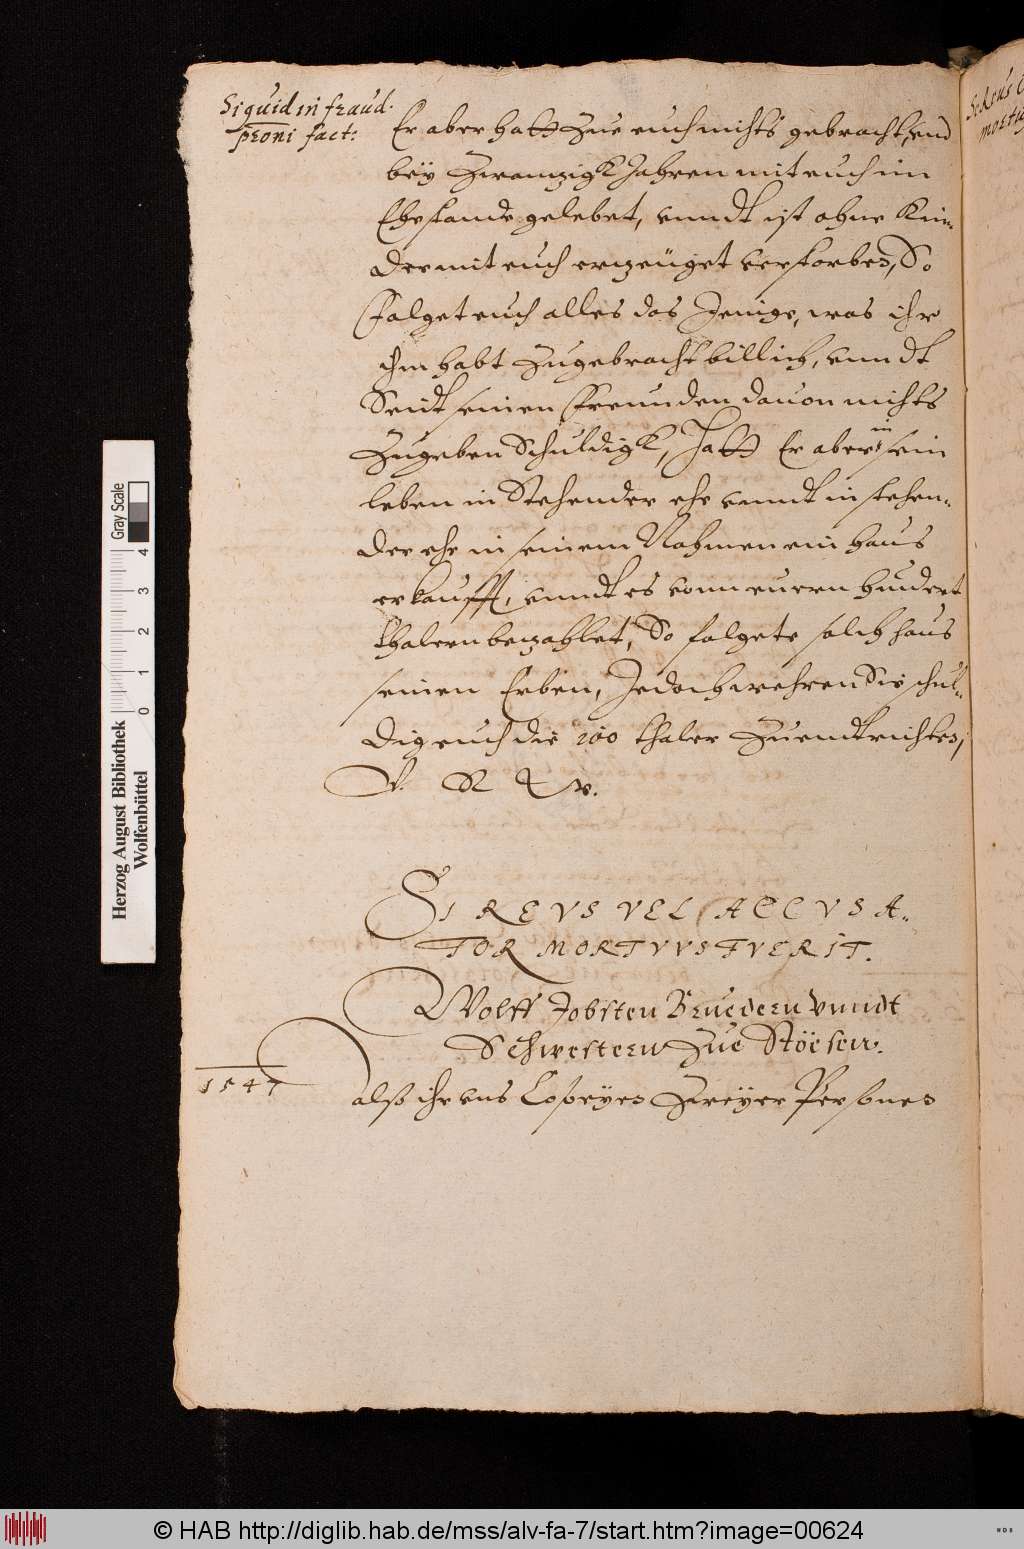 Si quid in fraud.
p̄roni fact:
Er aber hatt zue euch nichts gebracht, vnd
bey zwanzigk Jahren mit euch im
Ehestande gelebet, vnndt ist ohne Kin-
der mit euch erzeüget verstorben, So
folget euch alles das Jenige, was ihr
ihm habt zugebracht billich, vnndt
Seidt seinen Freunden dauon nichts
zugeben Schuldigk, Hatt Er aber in sein
leben in Stehender ehe vnndt in stehen-
der ehe in seinem Nahmen ein haus
erkaufft, vnndt es vonn euern hundert
thalern bezahlet, So folgete solch haus
seinen Erben, Jedoch wehren Sie schul-
dig euch die 100 thaler zuendtrichten,
V. R. W.
SI REVS VEL ACCVSA-
TOR MORTVVS FVERIT.
Wolff Jobsten Bruedern vnndt
Schwestern zue Stöesen.
1547
alß ihr vns Copeyen zweyer Personen
Si Reus
mortu
Herzog August Bibliothek
Wolfenbüttel
0 1 2 3 4
Gray Scale
© HAB http://diglib.hab.de/mss/alv-fa-7/start.htm?image=00624